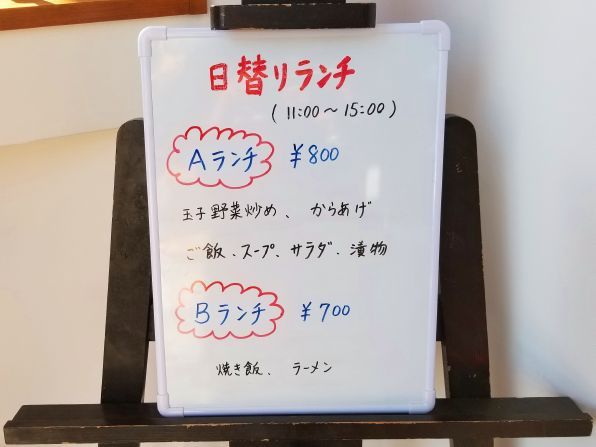 日替リランチ
(11:00～15:00)
Aランチ ¥800
玉子野菜炒め、からあげ
ご飯、スープ、サラダ、漬物
Bランチ ¥700
焼き飯、ラーメン